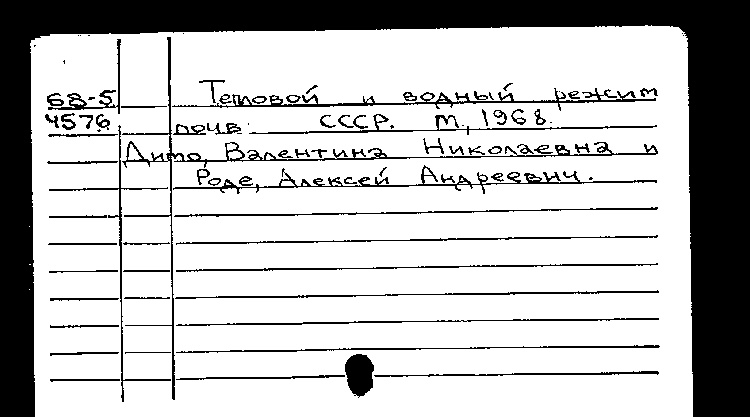 68-5 Тепловой и водный режим
4576 почв СССР. М, 1968.
Димо, Валентина Николаевна и
Роде, Алексей Андреевич.